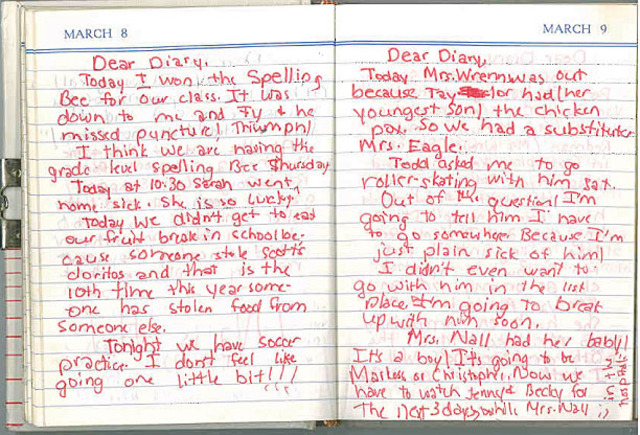 MARCH 8
Dear Diary,
Today I won the Spelling
Bee for our class. It was
down to me and Ty & he
missed puncture! Triumph!
I think we are having the
grade level spelling Bee Thursday
Today at 10:30 Sarah went
home sick. She is so lucky.
Today we didn't get to eat
our fruit break in school be-
cause someone stole Scott's
doritos and that is the
10th time this year some-
one has stolen food from
someone else.
Tonight we have soccer
practice. I don't feel like
going one little bit!!!
MARCH 9
Dear Diary,
Today Mrs. Wrenn was out
because Taylor had (her
youngest son) the chicken
pox. So we had a substitute
Mrs. Eagle.
Todd asked me to go
roller-skating with him sat.
Out of the question! I'm
going to tell him I have
to go somewhere Because I'm
just plain sick of him!
I didn't even want to
go with him in the 1st
place. I'm going to break
up with him soon.
Mrs. Nall had her baby!
It's a boy! It's going to be
Markoss or Christopher. Now we
have to watch Jenny & Becky for
the next 3 days, while Mrs. Nall is
in the
hospital.